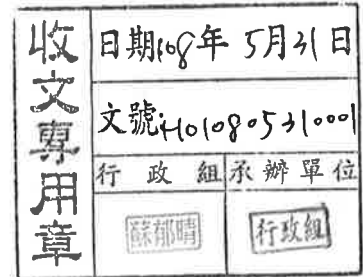 收文專用章
日期108年 5月31日
文號:H1010805310001
行政組 承辦單位
蘇郁晴 行政組